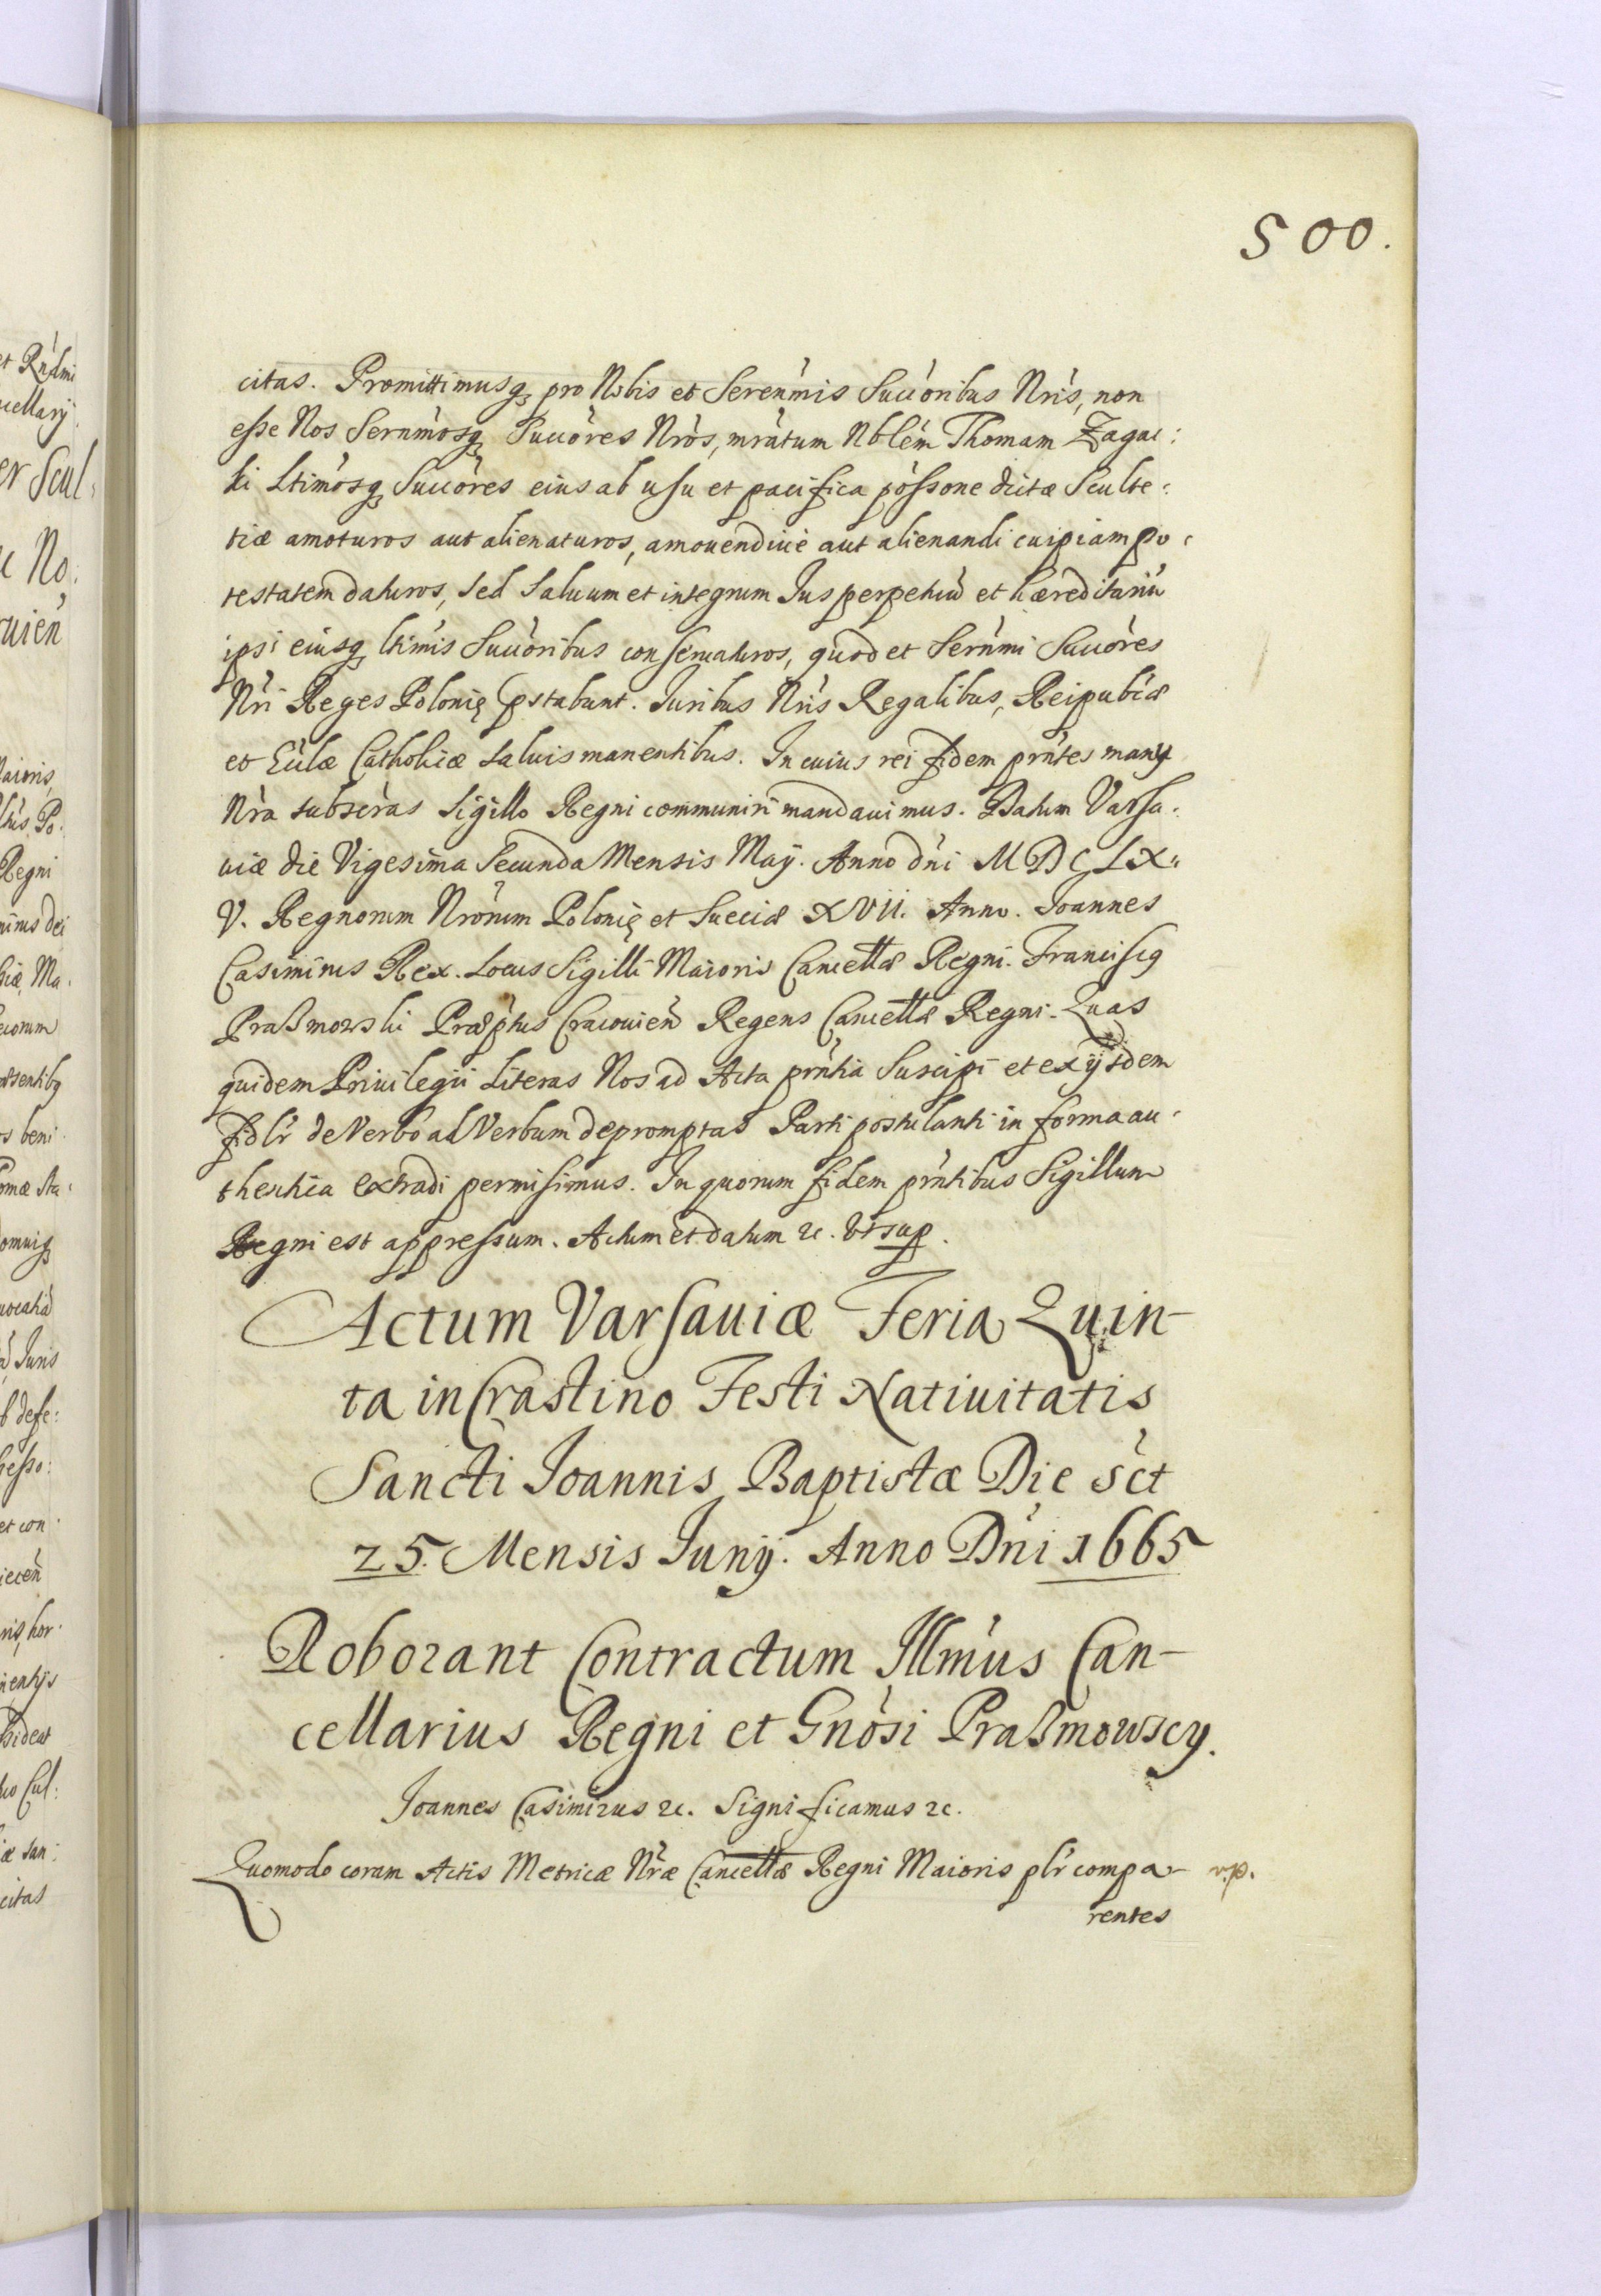 500.
citas. Promittimusq₃ pro Nobis et Serenm̀is Succòribus Nrìs, non
esse Nos Sernm̀osq₃ Succòres Nròs, mràtum Nblèm Thomam Zagac:
ki Ltimòsq₃ Succòres eius ab usu et pacifica pòssone dictæ Sculte:
tiæ amoturos aut alienaturos, amovendive aut alienandi cuipiam po:
testatem daturos, sed saluum et integrum Jus perpetuũ et hæreditariũ
ipsi eiusq₃ ltimìs Succòribus conservaturos, quod et Sernm̀i Succòres
Nrì Reges Polonię pstabunt. Juribus Nrìs Regalibus, Reipubcæ̀
et Ecc̀læ Catholicæ saluis manentibus. In cuius rei fidem prǹtes manu
Nrà subscràs Sigillo Regni communiri mandauimus. Datum Varsa:
uiæ die Vigesima Secunda Mensis Maij. Anno dnì MDCLX:
V. Regnorum Nròrum Polonię et Sueciæ XVII. Anno. Joannes
Casimirus Rex. Locus Sigilli Maioris Cancellæ Regni. Franciscq
Praßmowski Præptùs Cracouien̄ Regens Cancellæ Regni. Quas
quidem Priuilegii Literas Nos ad Acta prǹtia Suscipi et ex ijsdem
fidlr̀ de Verbo ad Verbum depromptas Parti postulanti in forma au:
thentica extradi permisimus. In quorum fidem prǹtibus Sigillum
Regni est appressum. Actum et datum ꝛc. Vt sup.
Actum Varsauiæ Feria Quin-
ta in Crastino Festi Natiuitatis
Sancti Joannis Baptistæ Die sc̀t
25. Mensis Junij. Anno Dnì 1665
Roborant Contractum Illm̀us Can-
cellarius Regni et Gnòsi Praßmowscy.
Joannes Casimirus ꝛc. Significamus ꝛc.
Quomodo coram Actis Metricæ Nræ̀ Cancellæ Regni Maioris plr̀ compa-
rentes